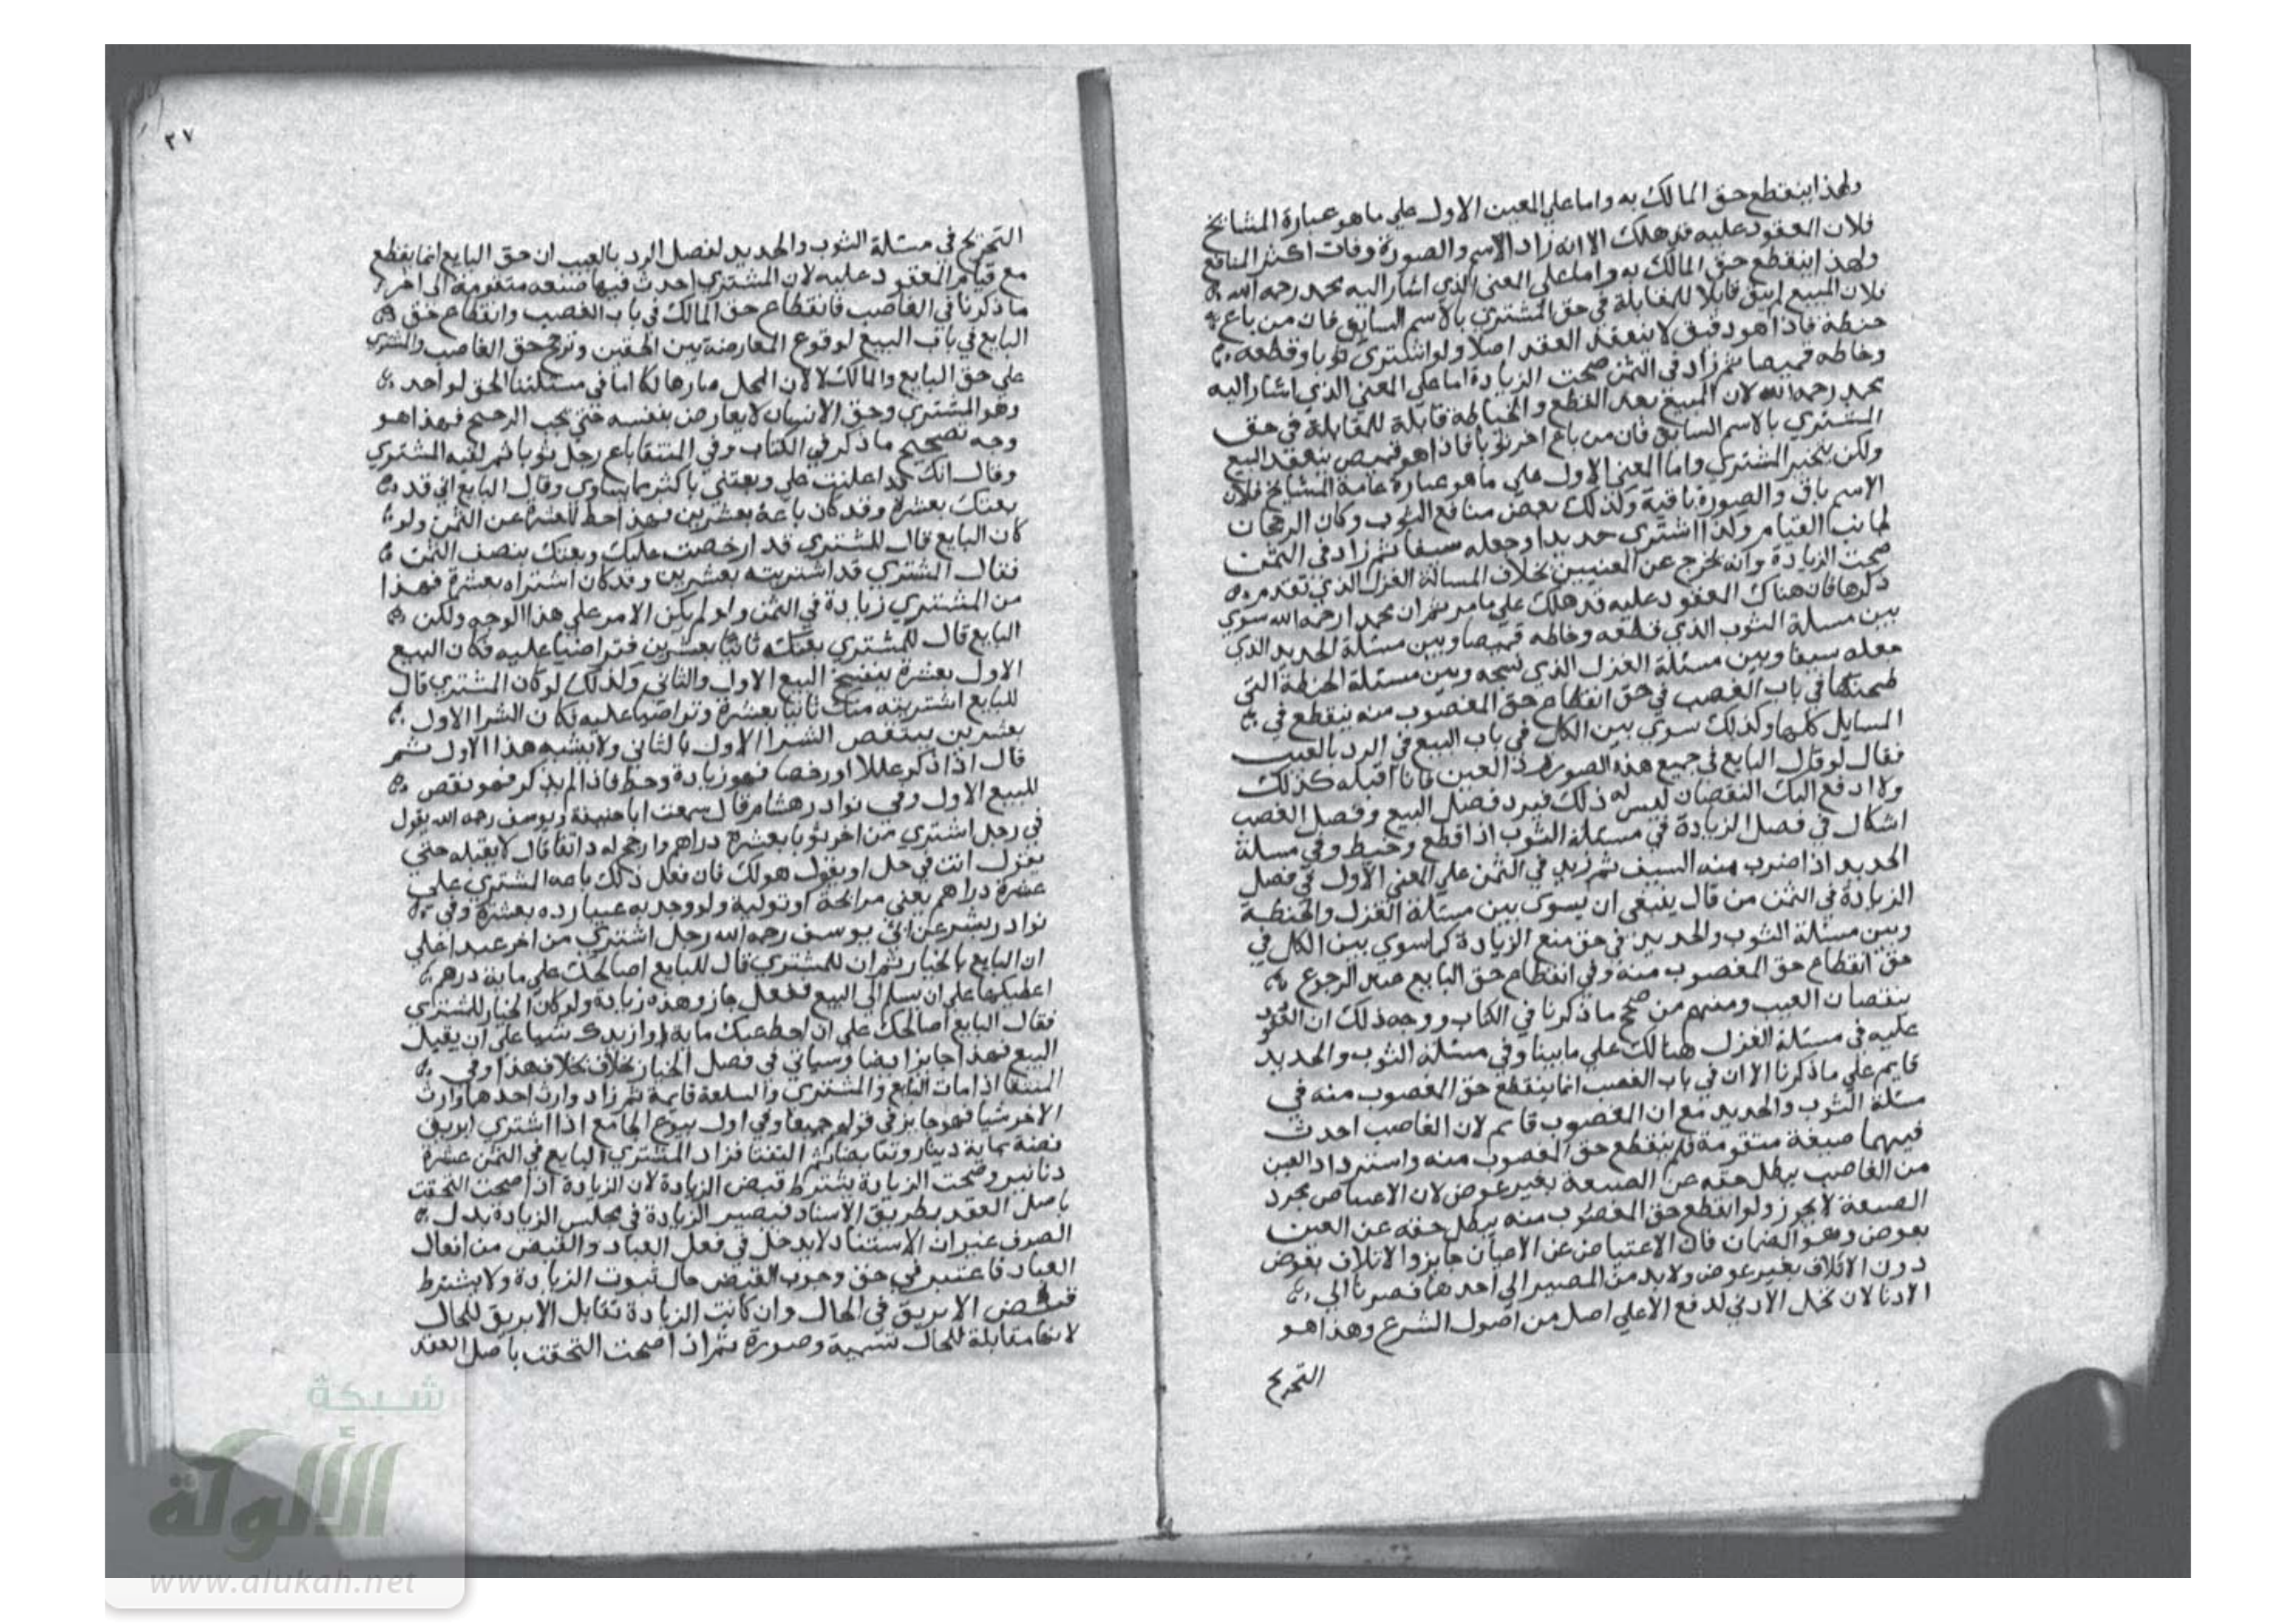 ولهذا ينقطع حق المالك به واما على المعين الاول على ما هو عبارة المشائخ
فلان المعقود عليه قد هلك الا انه زاد الاسم والصورة وفات اكثر المنافع
ولهذا ينقطع حق المالك به واما على المعنى الذي اشار اليه محمد رحمه الله
فلان المبيع لم يبق قابلا للمقابلة في حق المشتري بالاسم السابق فان من باع
حنطة فاذا هو دقيق لا ينعقد العقد اصلا ولو اشترى ثوبا وقطعه
وخاطه قميصا ثم زاد في الثمن صحت الزيادة اما على المعنى الذي اشار اليه
محمد رحمه الله لان المبيع بعد القطع والخياطة قابلة للمقابلة في حق
المشتري بالاسم السابق فان من باع اخر ثوبا فاذا هو قميص ينعقد البيع
ولكن يتخير المشتري واما المعنى الاول على ما هو عبارة عامة المشايخ فلان
الاسم باق والصورة باقية ولذلك بعض منافع الثوب وكان الرجحان
لجانب القيام ولذا اشترى حديدا وجعله سيفا ثم زاد في الثمن
صحت الزيادة وانه يخرج عن المعنيين بخلاف المسالة الغزل الذي تقدم
ذكرها فان هناك المعقود عليه قد هلك على ما مر ثم ان محمدا رحمه الله سوى
بين مسلة الثوب الذي قطعه وخاطه قميصا وبين مسئلة الحديد الذي
جعله سيفا وبين مسئلة الغزل الذي نسجه وبين مسئلة الحنطة التي
طحنتها في باب الغصب في حق انقطاع حق المغصوب منه ينقطع في
المسايل كلها وكذلك سوى بين الكل في باب البيع في الرد بالعيب
فقال لو قال البايع في جميع هذه الصور رد العين فانا اقبله كذلك
ولا ادفع اليك النقصان ليس له ذلك فيرد فصل البيع وفصل الغصب
اشكال في فصل الزيادة في مسئلة الثوب اذا قطع وخيط وفي مسلة
الحديد اذا ضرب منه السيف ثم زيد في الثمن على المعنى الاول في فصل
الزيادة في الثمن من قال ينبغي ان يسوى بين مسئلة الغزل والحنطة
وبين مسئلة الثوب والحديد في حق منع الزيادة كما سوى بين الكل في
حق انقطاع حق المغصوب منه وفي انقطاع حق البايع عند الرجوع
بنقصان العيب ومنهم من صحح ما ذكرنا في الكتاب ووجه ذلك ان المعقود
عليه في مسئلة الغزل هنالك على ما بينا وفي مسئلة الثوب والحديد
قايم على ما ذكرنا الا ان في باب الغصب انما ينقطع حق المغصوب منه في
مسئلة الثوب والحديد مع ان المغصوب قايم لان الغاصب احدث
فيهما صبغة متقومة فلم ينقطع حق المغصوب منه واسترداد العين
من الغاصب يبطل حقه عن الصنعة بغير عوض لان الاعتياض بمجرد
الصنعة لا يجوز ولو انقطع حق المغصوب منه يبطل حقه عن العين
بعوض وهو الضمان فان الاعتياض عن الاعيان جايز والاتلاف بعوض
دون الاتلاف بغير عوض ولا بد من المصير الى احدهما فصرنا الى
الادنا لان تحمل الادنى لدفع الاعلى اصل من اصول الشرع وهذا هو
التخريج
٣٧
التخريج في مسئلة الثوب والحديد لفصل الرد بالعيب ان حق البايع انما ينقطع
مع قيام المعقود عليه لان المشتري احدث فيها صنعه متقومة الى اخر
ما ذكرنا في الغاصب فانقطاع حق المالك في باب الغصب وانقطاع حق
البايع في باب البيع لوقوع المعارضة بين الحقين وترجح حق الغاصب والمشتري
على حق البايع والمالك لا لان المحل صار هالكا اما في مسئلتنا الحق لواحد
وهو المشتري وحق الانسان لا يعارض بنفسه حتى يجب الرجيح فهذا هو
وجه تصحيح ما ذكر في الكتاب وفي المنتقا باع رجل ثوبا ثم لقيه المشتري
وقال انك قد اعلنت علي وبعتني باكثر مما يساوي وقال البايع اني قد
بعتك بعشرة وقد كان باعه بعشرين فهذا حط للعشرة عن الثمن ولو
كان البايع قال للمشتري قد ارخصت عليك وبعتك بنصف الثمن
فقال المشتري قد اشتريته بعشرين وقد كان اشتراه بعشرة فهذا
من المشتري زيادة في الثمن ولو لم يكن الامر على هذا الوجه ولكن
البايع قال للمشتري بعتكه ثانيا بعشرين فتراضيا عليه فكان البيع
الاول بعشرة ينفسخ البيع الاول والثاني وكذلك لو كان المشتري قال
للبايع اشتريته منك ثانيا بعشرة وتراضيا عليه فكان الشرا الاول
بعشرين ينتقص الشرا الاول بالثاني ولا يشبه هذا الاول ثم
قال اذا ذكر عللا او رخصا فهو زيادة وحط فاذا لم يذكر فهو نقص
للبيع الاول وفي نوادر هشام قال سمعت ابا حنيفة ويوسف رحمه الله يقول
في رجل اشترى من اخر ثوبا بعشرة دراهم وارجح له دانقا قال لا يقبله حتى
يقول انت في حل او يقول هو لك فان فعل ذلك باعه المشتري على
عشرة دراهم يعني مرابحة او تولية ولو وجد به عيبا رده بعشرة وفي
نوادر بشر عن ابي يوسف رحمه الله رجل اشترى من اخر عبدا على
ان البايع بالخيار ثم ان للمشتري قال للبايع اصالحك على ماية درهم
اعطيكها على ان يسلم الى البيع ففعل جاز وهذه زيادة ولو كان الخيار للمشتري
فقال البايع اصالحك على ان احط عنك ماية او ازيدك شيا على ان يقبل
البيع فهذا جايز ايضا وسياتي في فصل الخيار بخلاف بخلاف هذا وفي
المنتقا اذا مات البايع والمشتري والسلعة قايمة ثم زاد وارث احدهما وارث
الاخر شيا فهو جايز في قولهم جميعا وفي اول بيوع الجامع اذا اشترى ابريق
فضة بماية دينار وتقابضا ثم التقتا فزاد المشتري البايع في الثمن عشرة
دنانير وصحت الزيادة يشترط قبض الزيادة لان الزيادة اذا صحت التحقت
باصل العقد بطريق الاسناد فيصير الزيادة في مجلس الزيادة بدل
الصرف غير ان الاستناد لا يدخل في فعل العباد والقبض من افعال
العباد فاعتبر في حق وجوب القبض حال ثبوت الزيادة ولا يشترط
قبض الابريق في الحال وان كانت الزيادة تقابل الابريق للحال
لانها مقابلة للحال تسمية وصورة ثم اذا صحت التحقت باصل العقد
شبكة
الألوكة
www.alukah.net